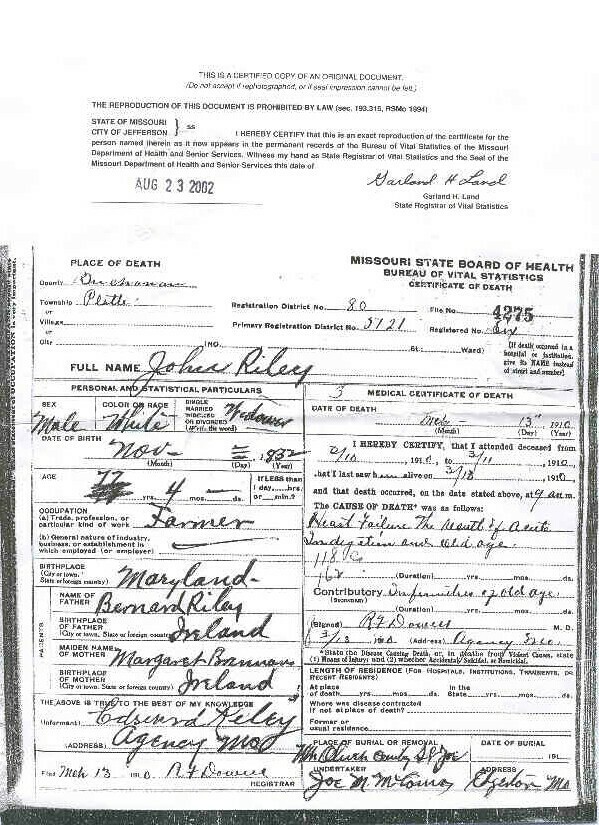 THIS IS A CERTIFIED COPY OF AN ORIGINAL DOCUMENT.
(Do not accept if rephotographed, or if seal impression cannot be felt.)
THE REPRODUCTION OF THIS DOCUMENT IS PROHIBITED BY LAW (sec. 193.315, RSMo 1994)
STATE OF MISSOURI
CITY OF JEFFERSON } ss
I HEREBY CERTIFY that this is an exact reproduction of the certificate for the
person named therein as it now appears in the permanent records of the Bureau of Vital Statistics of the Missouri
Department of Health and Senior Services. Witness my hand as State Registrar of Vital Statistics and the Seal of the
Missouri Department of Health and Senior Services this date of
AUG 23 2002
Garland H Land
Garland H. Land
State Registrar of Vital Statistics
PLACE OF DEATH
MISSOURI STATE BOARD OF HEALTH
BUREAU OF VITAL STATISTICS
CERTIFICATE OF DEATH
County Buchanan
Township Platte
or
Village
or
City
Registration District No. 80
File No. 4275
Primary Registration District No. 5121
Registered No.
(NO. St.; Ward)
(If death occurred in a
hospital or institution,
give its NAME instead
of street and number)
FULL NAME John Riley
PERSONAL AND STATISTICAL PARTICULARS
SEX
Male
COLOR OR RACE
White
SINGLE
MARRIED
WIDOWED
OR DIVORCED
(Write the word)
Widower
DATE OF BIRTH
Nov - 1832
(Month) (Day) (Year)
AGE
77 yrs. 4 mos. ds.
If LESS than
1 day, hrs.
or min.?
OCCUPATION
(a) Trade, profession, or
particular kind of work Farmer
(b) General nature of industry,
business, or establishment in
which employed (or employer)
BIRTHPLACE
(City or town,
State or foreign country) Maryland
PARENTS
NAME OF
FATHER Bernard Riley
BIRTHPLACE
OF FATHER
(City or town, State or foreign country) Ireland
MAIDEN NAME
OF MOTHER Margaret
BIRTHPLACE
OF MOTHER
(City or town, State or foreign country) Ireland
THE ABOVE IS TRUE TO THE BEST OF MY KNOWLEDGE
(Informant) Edward Riley
(ADDRESS) Agency Mo
Filed Mch 13 1910 R F Downs
REGISTRAR
3 MEDICAL CERTIFICATE OF DEATH
DATE OF DEATH
Mch 13" 1910
(Month) (Day) (Year)
I HEREBY CERTIFY, that I attended deceased from
2/10, 1910, to 3/11, 1910,
that I last saw h alive on 3/10, 1910,
and that death occurred, on the date stated above, at 9 a.m.
The CAUSE OF DEATH* was as follows:
Heart Failure The result of Acute
Indigestion and old age.
118
162
(Duration) yrs. mos. ds.
Contributory Infirmities of old age
(SECONDARY)
(Duration) yrs. mos. ds.
(Signed) R F Downs M. D.
3/13 1910 (Address) Agency Mo.
*State the Disease Causing Death, or, in deaths from Violent Causes, state
(1) Means of Injury; and (2) whether Accidental, Suicidal, or Homicidal.
LENGTH OF RESIDENCE (For Hospitals, Institutions, Transients, or
Recent Residents)
At place
of death yrs. mos. ds.
In the
State yrs. mos. ds.
Where was disease contracted
if not at place of death?
Former or
usual residence
PLACE OF BURIAL OR REMOVAL
St Joe
DATE OF BURIAL
191
UNDERTAKER
Joe M.
ADDRESS
Edgerton Mo